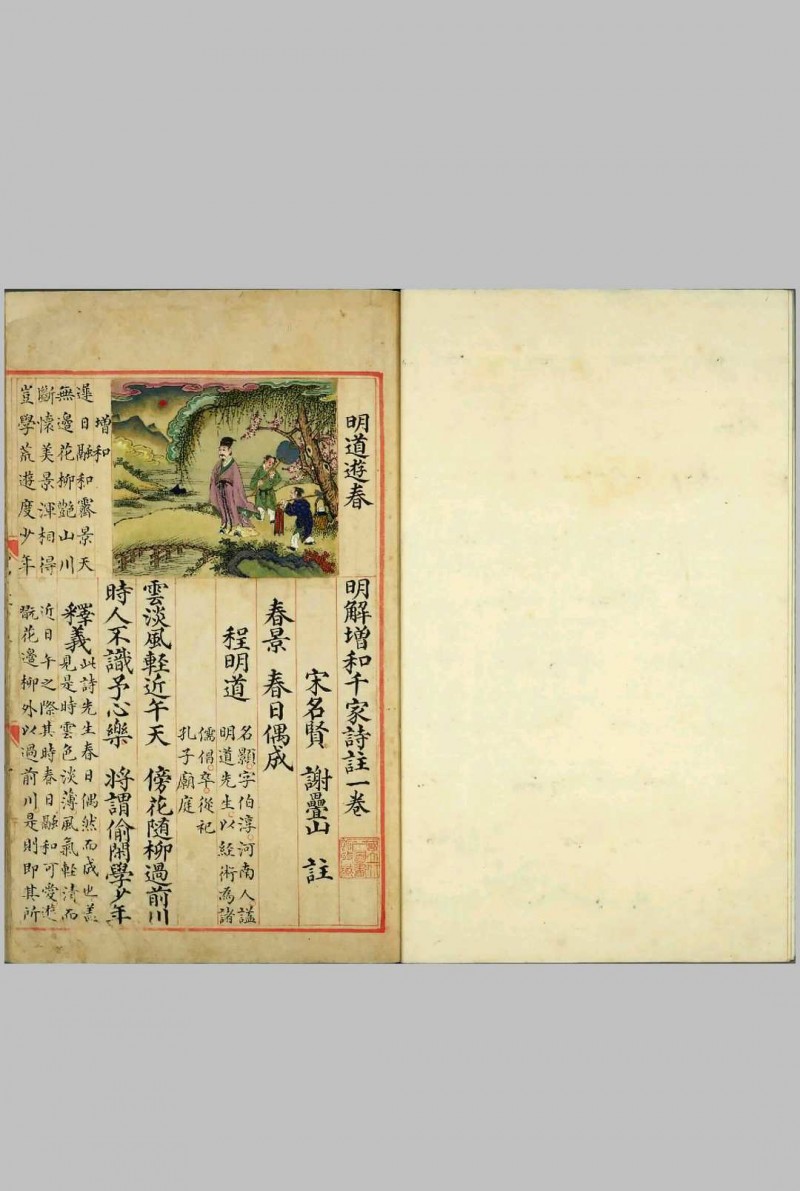 明道遊春
明解增和千家詩註一卷
宋名賢 謝疊山 註
春景 春日偶成
程明道
名顥字伯淳河南人諡
明道先生以經術為諸
儒倡卒從祀
孔子廟庭
雲淡風輕近午天 傍花隨柳過前川
時人不識予心樂 將謂偷閑學少年
釋義
此詩先生春日偶然而成也蓋
見是時雲色淡薄風氣輕清而
近日午之際其時春日融和可愛遊
翫花邊柳外以過前川是則即其所
增和
遲日融和霽景天
無邊花柳艷山川
斷懷美景渾相得
豈學荒遊度少年